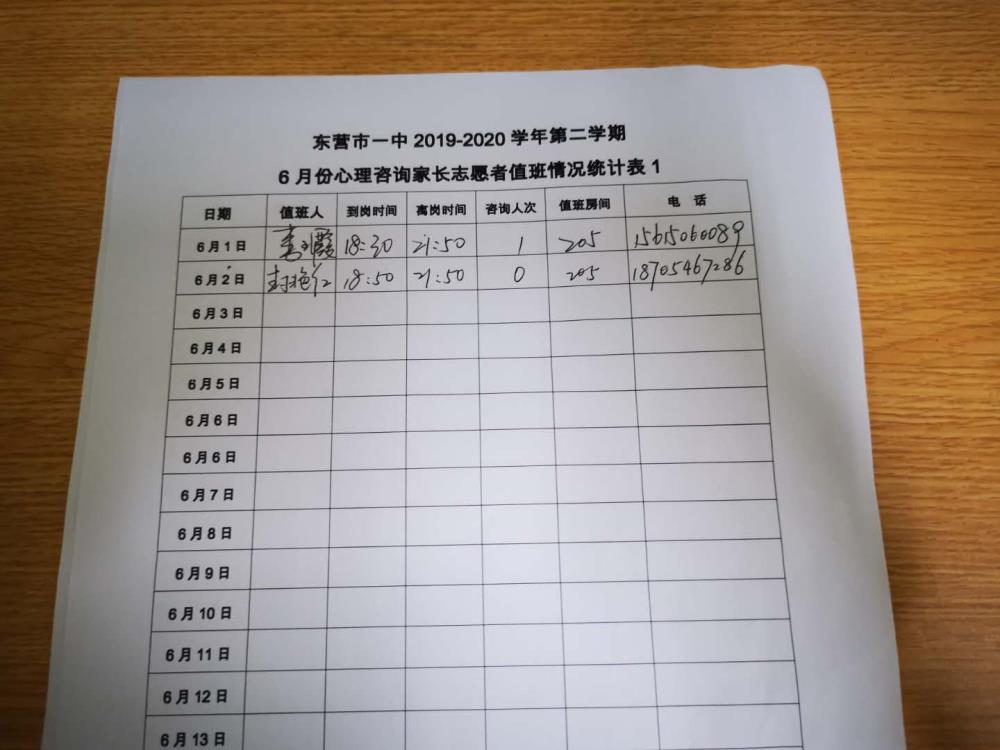 东营市一中 2019-2020 学年第二学期
6 月份心理咨询家长志愿者值班情况统计表 1
日期 值班人 到岗时间 离岗时间 咨询人次 值班房间 电 话
6月1日 18:30 21:50 1 205 15615060089
6月2日 18:50 21:50 0 205 18705467286
6月3日
6月4日
6月5日
6月6日
6月6日
6月7日
6月8日
6月9日
6月10日
6月11日
6月12日
6月13日